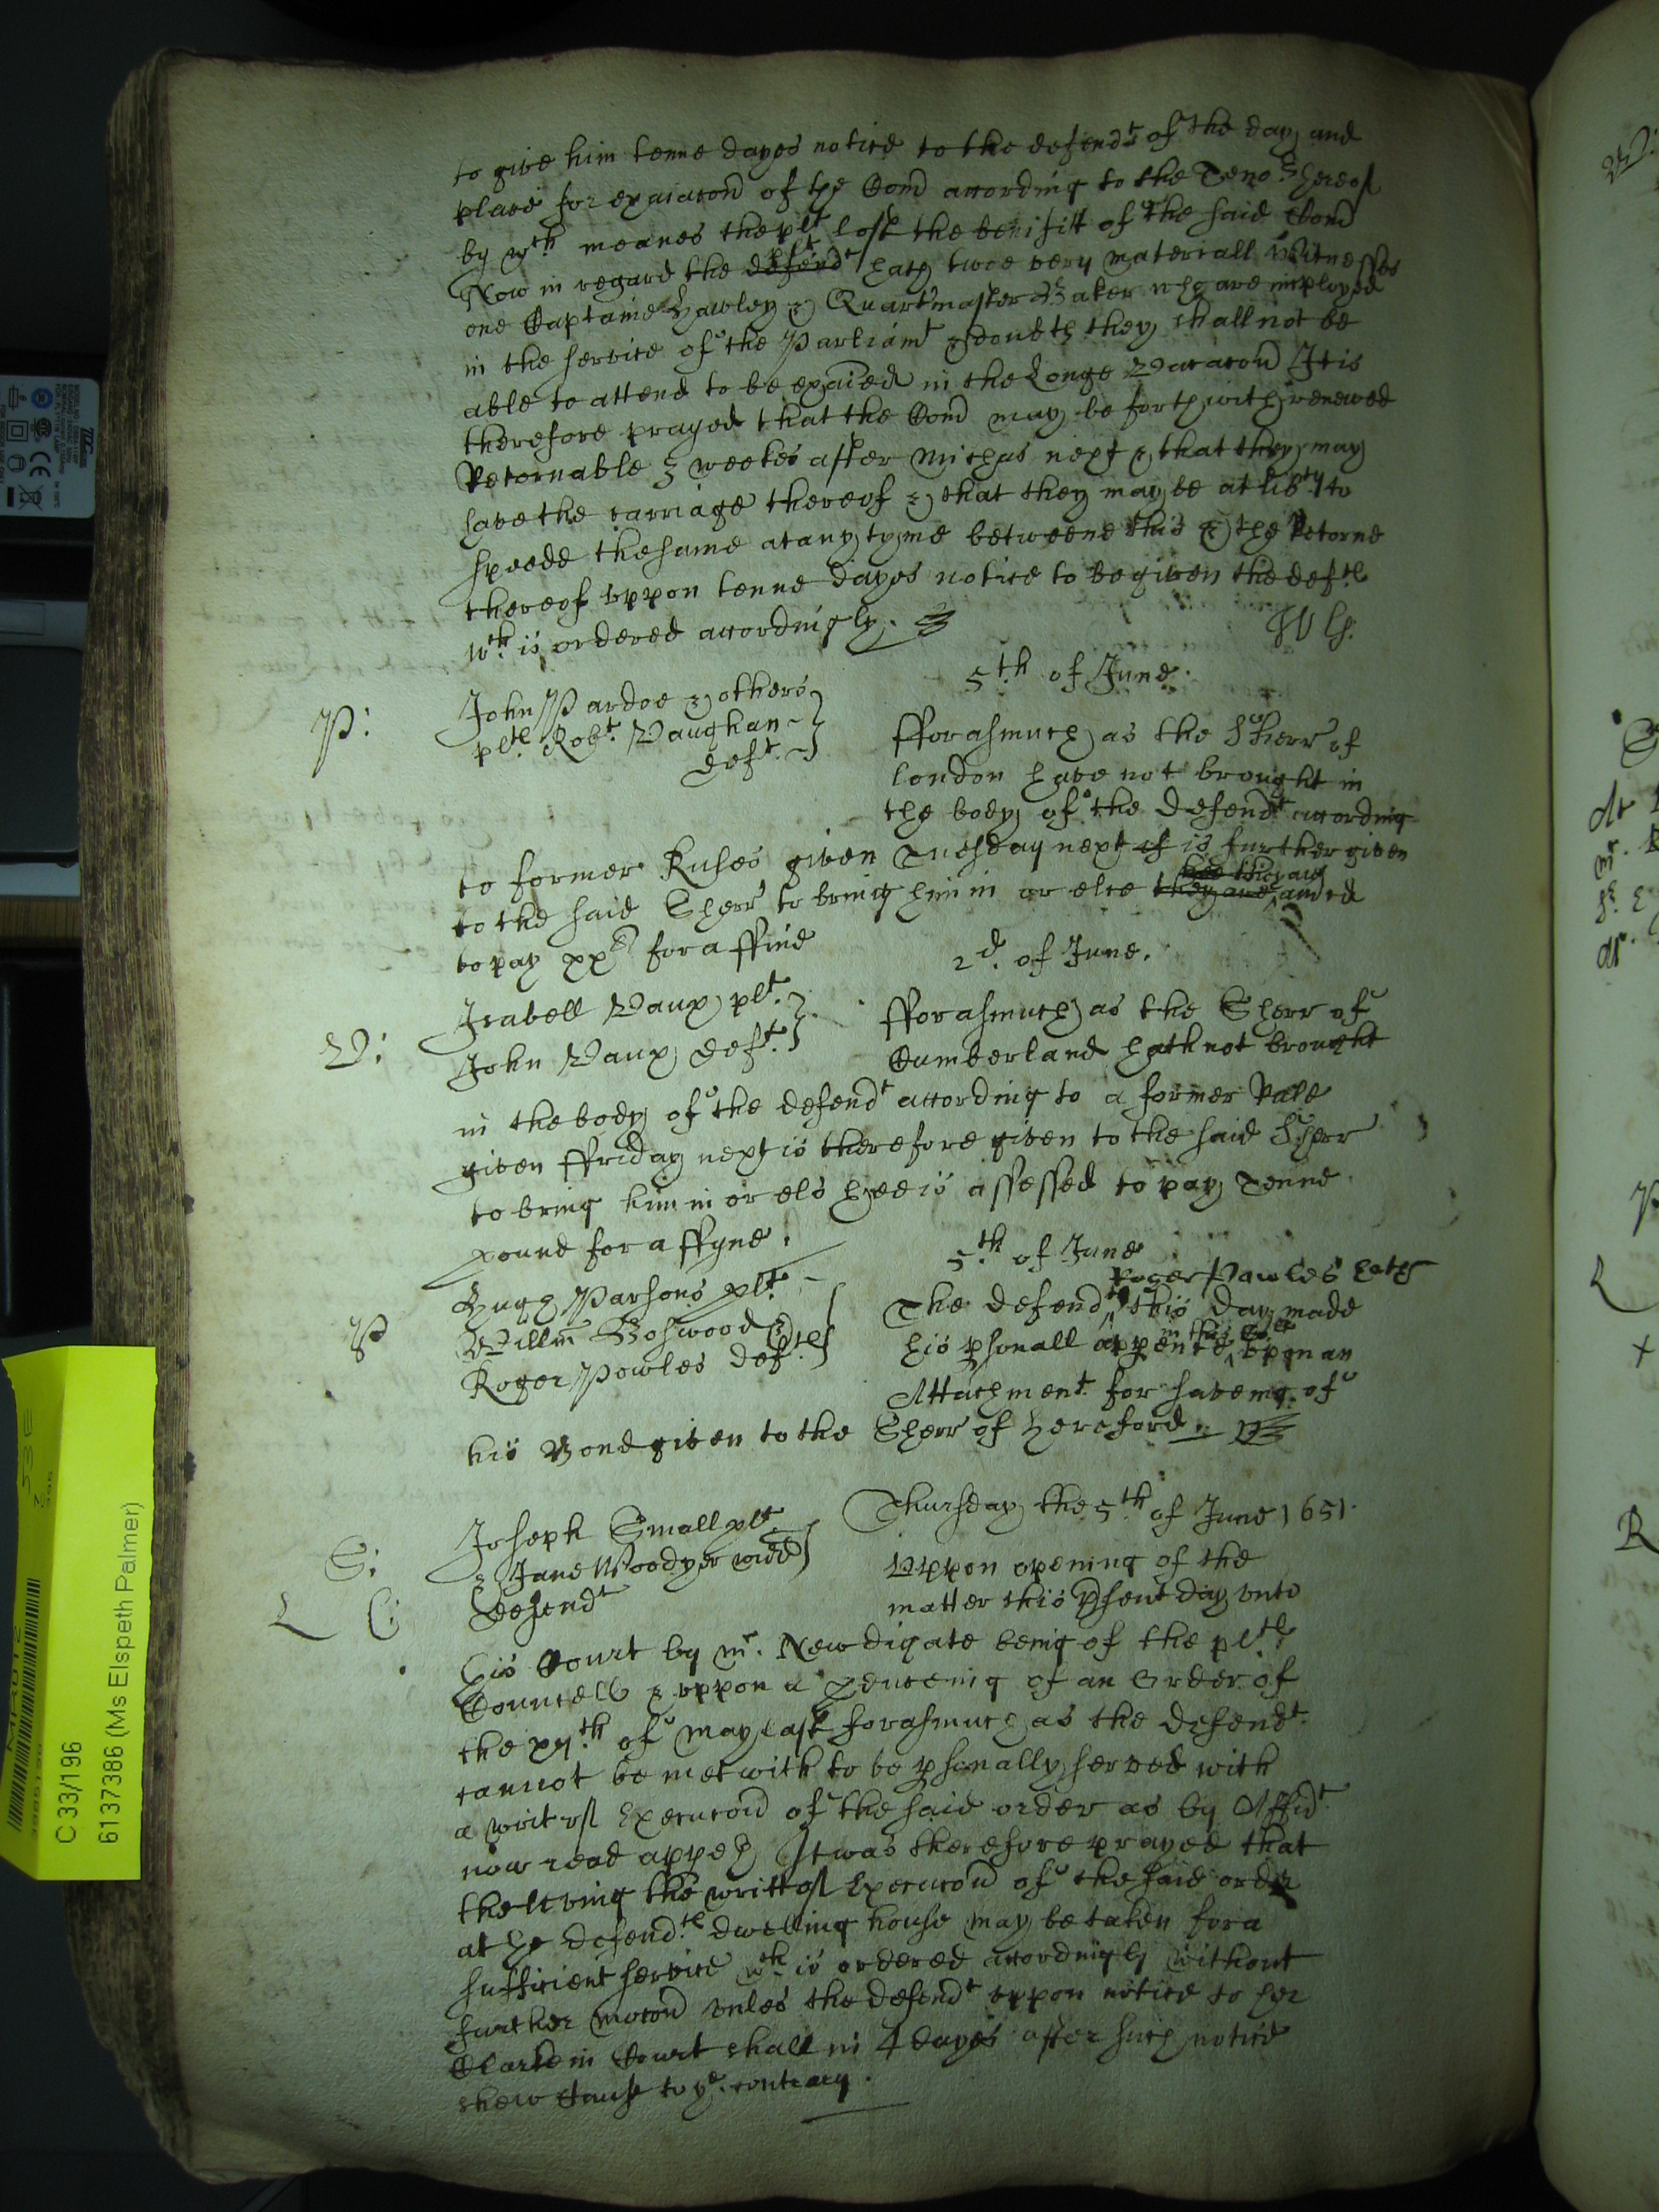 to give him tenne dayes notice to the defendt of the day and
place for exaiacon of the Com̄ according to the Teno.r thereof
by wch meanes the plt lost the benifitt of the said Com̄
Now in regard the defendt plt hath twoe very materiall Witnesses
one Captaine Hawley & Quartmaster Baker who are imployed
in the service of the Parliamt & doubteth they shall not be
able to attend to be exaied in the Longe Vacacon It is
therefore prayed that the Com̄ may be forthwith renewed
Retornable 3 weekes after Michas next & that they may
have the carriage thereof & that they may be at libty to
speede the same at any tyme betweene this & the Retorne
thereof vppon tenne dayes notice to be given the defts
wch is ordered accordingly.
5th of June.
P:
John Pardoe & others
plts Robt. Vaughan
deft.
fforasmuch as the Sherr of
London have not brought in
the body of the Defendt according
to former Rules given Tuesday next is further given
to the said Sherr to bring him in or else they are amced
to pay xxli for a ffine
2d. of June.
V:
Isabell Vaux plt.
John Vaux deft.
fforasmuch as the Sherr of
Cumberland hath not brought
in the body of the defendt according to a former Rule
given ffriday next is therefore given to the said Sherr
to bring him in or els hee is assessed to pay Tenne
pound for a ffyne.
5th of June
P
Hugh Parsons plt.
Willm Boswood &
Roger Powles defts
Roger Pawles hath
The defendt this day made
his psonall appence in this Cort vpon an
Attachment for haveing of
his Bond given to the Sherr of Hereford.
Thursday the 5th of June 1651.
S:
L C:
Joseph Small plt
Jane Woodyer widd
Defendt
Vppon opening of the
matter this psent day vnto
this Court by mr. Newdigate being of the plts
Councell & vppon a Heareing of an Order of
the xyth of May last forasmuch as the defendt
cannot be met with to be psonally served with
a writ of Execucon of the said order as by Affidt
now read appeth It was therefore prayed that
the leaving the writt of Execucon of the said order
at the defendts dwelling house may be taken for a
sufficient service wch is ordered accordingly without
further mocon vnles the defendt vppon notice to her
Clarke in Court shall in 4 dayes after such notice
shew Cause to ye. contrary.
C 33/196
6137386 (Ms Elspeth Palmer)